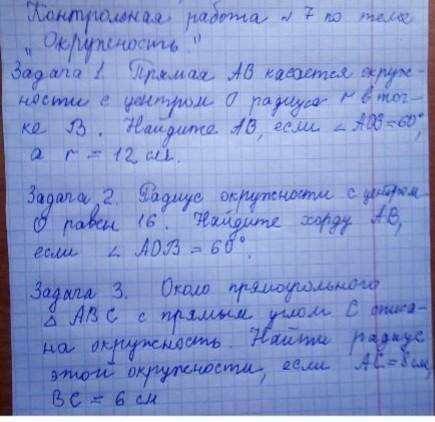 Контрольная работа №7 по теме
"Окружность"
Задача 1. Прямая АВ касается окруж-
ности с центром О радиуса r в точ-
ке В. Найдите АВ, если ∠АОВ=60°,
а r = 12 см.
Задача 2. Радиус окружности с центром
О равен 16. Найдите хорду АВ,
если ∠ АОВ = 60°.
Задача 3. Около прямоугольного
△ АВС с прямым углом С описа-
на окружность. Найти радиус
этой окружности, если АС=8см,
ВС = 6 см